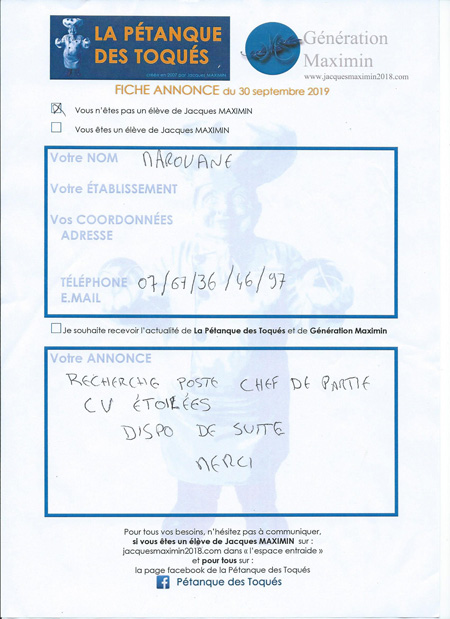 LA PÉTANQUE
DES TOQUÉS
Génération
Maximin
www.jacquesmaximin2018.com
FICHE ANNONCE du 30 septembre 2019
Vous n'êtes pas un élève de Jacques MAXIMIN
Vous êtes un élève de Jacques MAXIMIN
Votre NOM MAROUANE
Votre ÉTABLISSEMENT
Vos COORDONNÉES
ADRESSE
TÉLÉPHONE 07/67/36/46/97
E.MAIL
Je souhaite recevoir l'actualité de La Pétanque des Toqués et de Génération Maximin
Votre ANNONCE
RECHERCHE POSTE CHEF DE PARTIE
CV ÉTOILÉES
DISPO DE SUITE
MERCI
Pour tous vos besoins, n'hésitez pas à communiquer,
si vous êtes un élève de Jacques MAXIMIN sur :
jacquesmaximin2018.com dans « l'espace entraide »
et pour tous sur :
la page facebook de la Pétanque des Toqués
Pétanque des Toqués